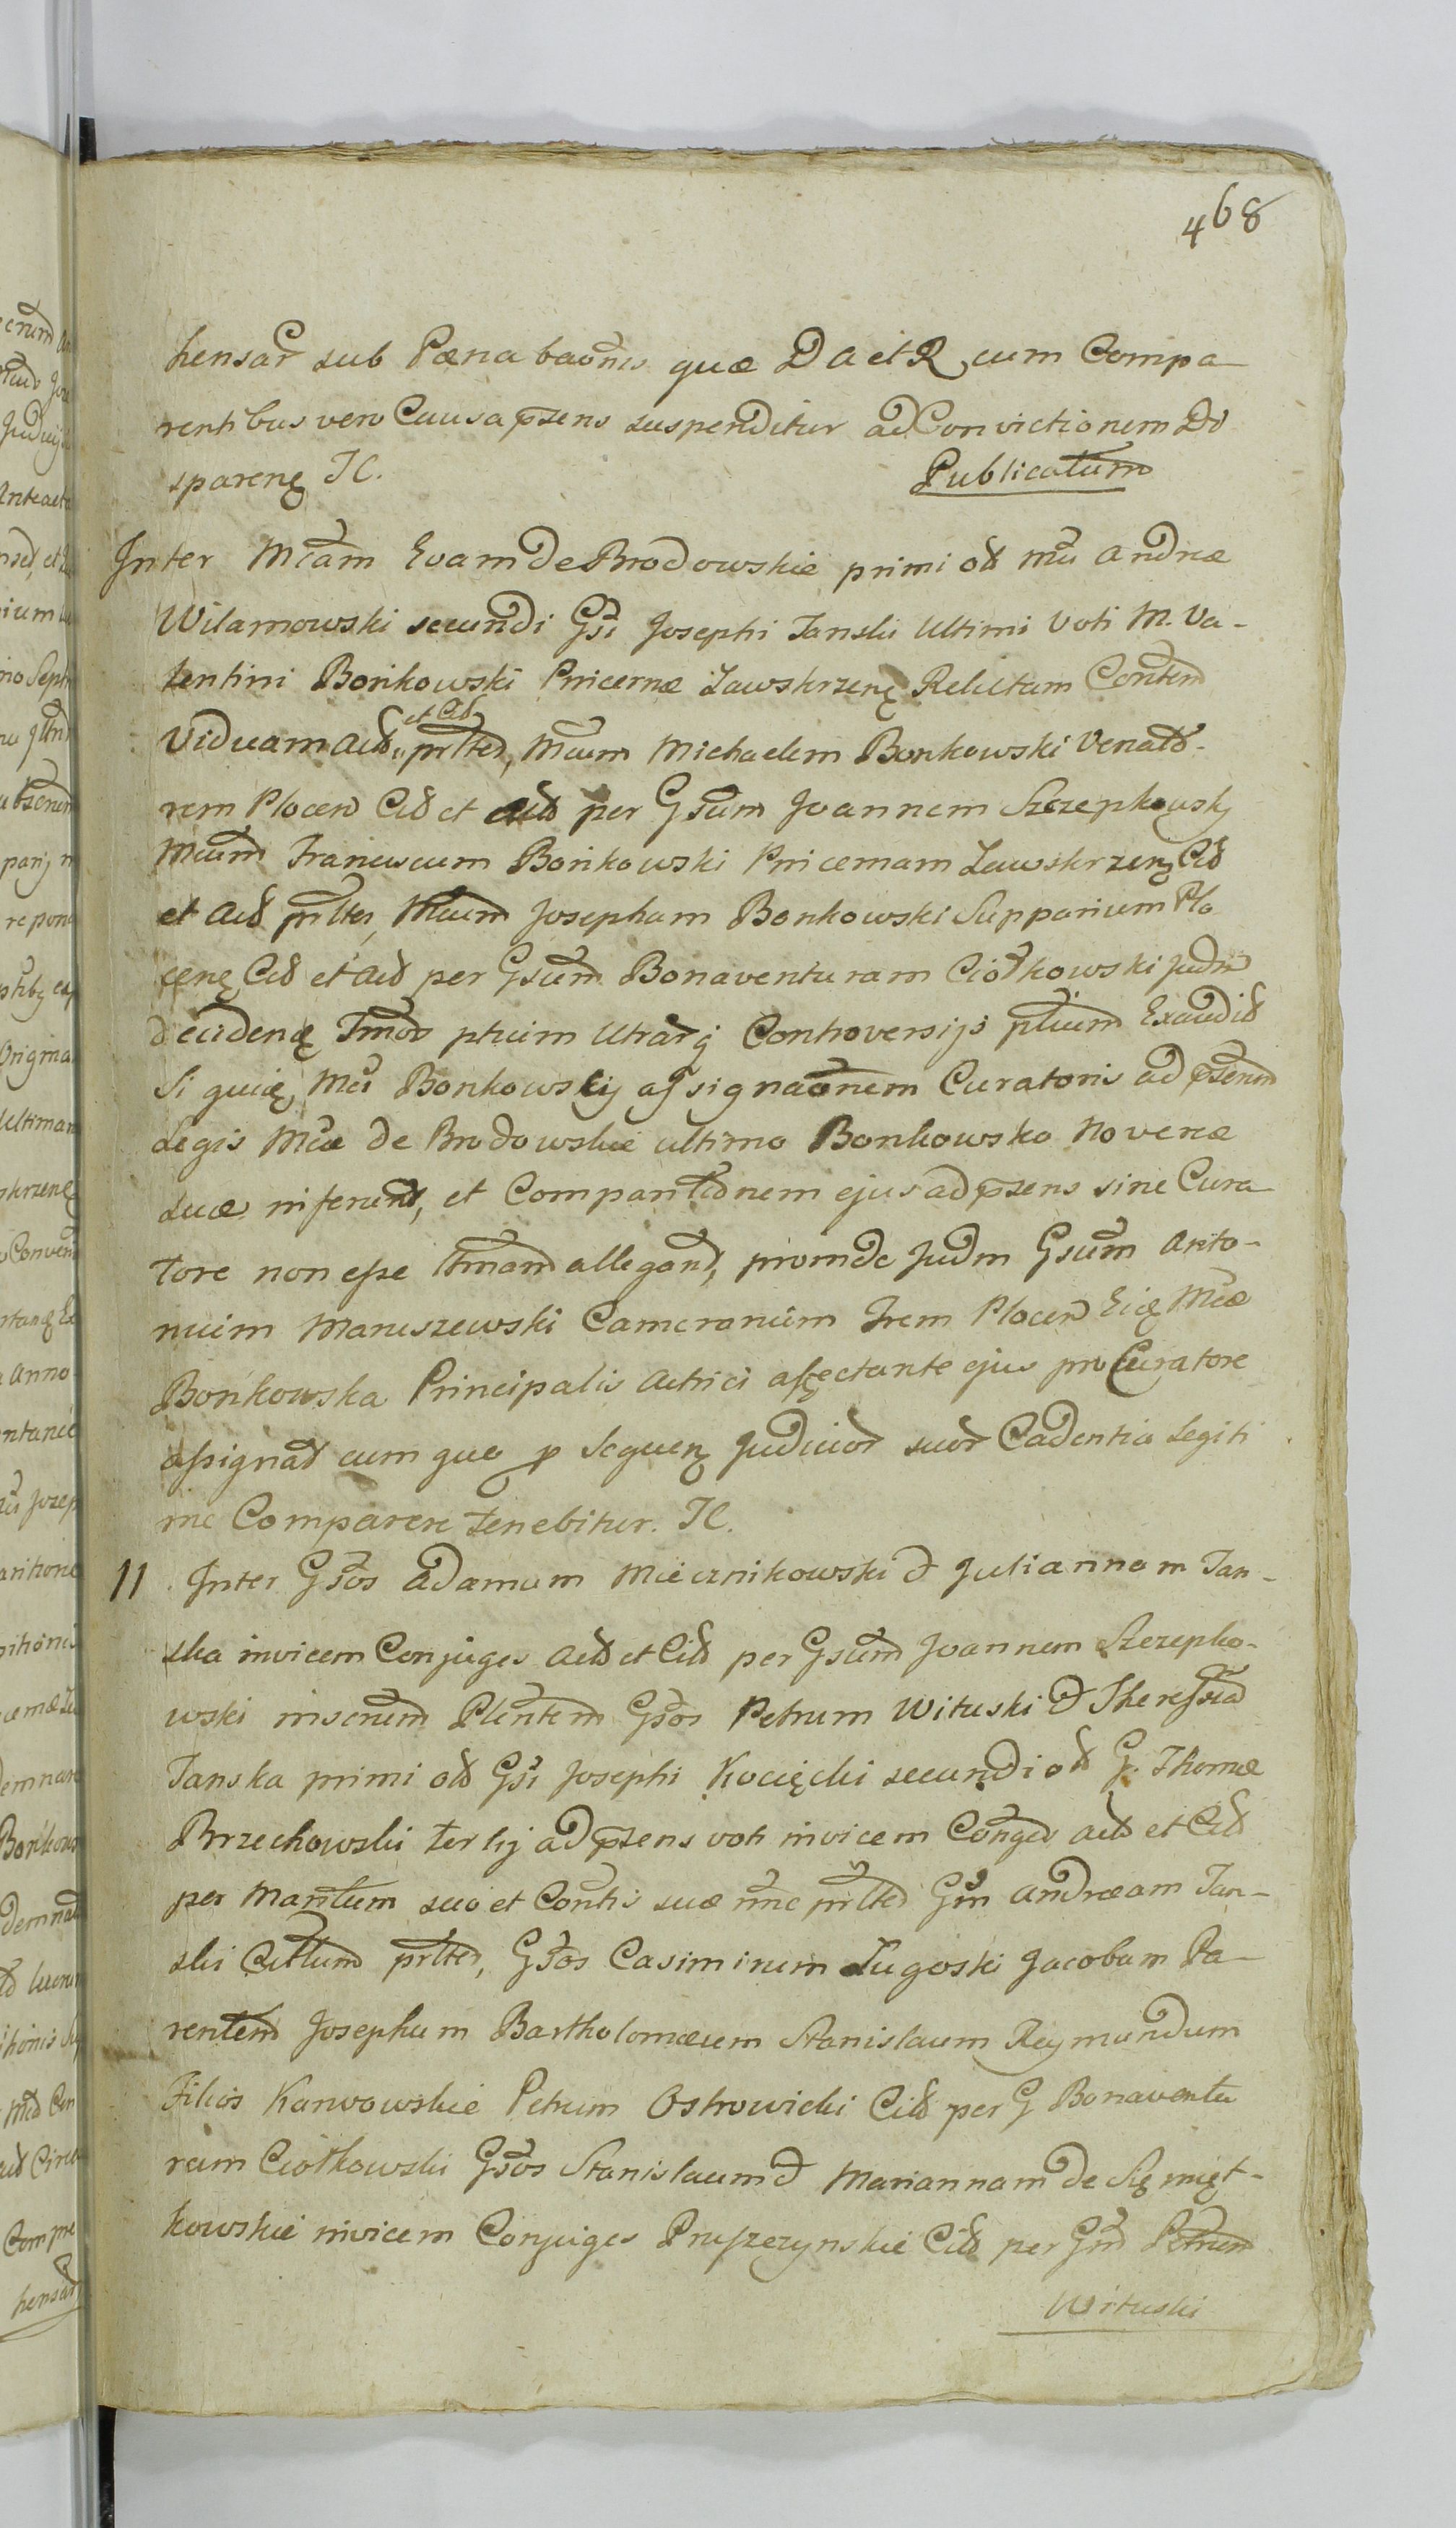 468
hensar sub Pæna baõnis quæ D a et R, cum Compa-
rentibus vero Causa p̃sens suspenditur ad Convictionem Di
sparenę IC.
Publicatum
Inter Mcam Evam de Brodowskie primi oł mci Andreæ
Wilamowski secundi Gsi Josephi Janski Ultimi Voti M. Va-
lentini Bońkowski Pincernæ Zawskrzenę Relictam Contem
Viduam Actł et Citł prlted, Mcum Michaelem Bonkowski Venato-
rem Plocen Citł et Actł per Gsum Joannem Szczepkowski
Mcum Franciscum Bońkowski Pincernam Zawskrzenę Citł
et Actł prltes, Mcum Josephum Bonkowski Supparium Plo
cenę Citł et Actł per Gsum Bonaventuram Ciołkowski Judm
decidenę Tmos ptium Utrarq Controversijs ptium Exaudit
Si quidę Mci Bonkowskij assignaonem Curatoris ad p̃senem
Legis Mcæ de Brodowskie ultimo Bonkowska Novercæ
suæ inferend, et Comparitionem ejus ad p̃sens sine Cura
tore non esse ltmam allegand, proinde Judm Gsum Anto-
nium Maruszewski Camerarium Trem Plocen Eidę Mcæ
Bońkowska Principalis Actrici affectante ejus pro Curatore
assignat cum quo p Sequenę Judicior suor Cadentia Legiti
me Comparere tenebitur. IC.
11. Inter Gsos Adamum Miecznikowski et Juliannam Jan-
ska invicem Conjuges Actł et Citł per Gsum Joannem Szczepko-
wski inserund Pltentem Gsos Petrum Wituski et Theressiam
Janska primi oł Gsi Josephi Kocięcki secundi oł G. Thomæ
Brzechowski tertij ad p̃sens voti invicem Conges Actł et Citł
per Maritum suo et Contis suæ nnc prlted Gsm Andreeam Jan-
ski Citłum prlted, Gsos Casimirum Ługoski Jacobum Pa-
rentem Josephum Bartholomæum Stanislaum Reymundum
Filios Karwowskie Petrum Ostrowicki Citł per G Bonaventu
ram Ciołkowski Gsos Stanislaum et Mariannam de Sęmięt-
kowskie invicem Conjuges Pruszczynskie Citł per Gsm Petrum
Wituski